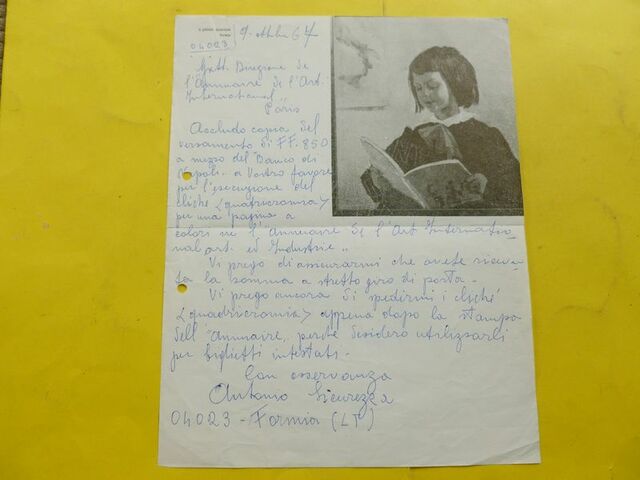 04023
9. ottobre 67
Spett. Direzione de
l'Annuaire de l'Art.
International
Paris
Accludo copia del
versamento di FF. 850
a mezzo del Banco di
Napoli a Vostro favore
per l'esecuzione del
cliché <quadricromia>
per una pagina a
colori ne l'Annuaire de l'Art Internatio
nal art. ed Industrie..
Vi prego di assicurarmi che avete ricevu
ta la somma a stretto giro di posta.
Vi prego ancora di spedirmi i cliché
<quadricromia> appena dopo la stampa
dell'Annuaire, perché desidero utilizzarli
per biglietti intestati.
Con osservanza
Antonio Sicurezza
04023 - Formia (LT)